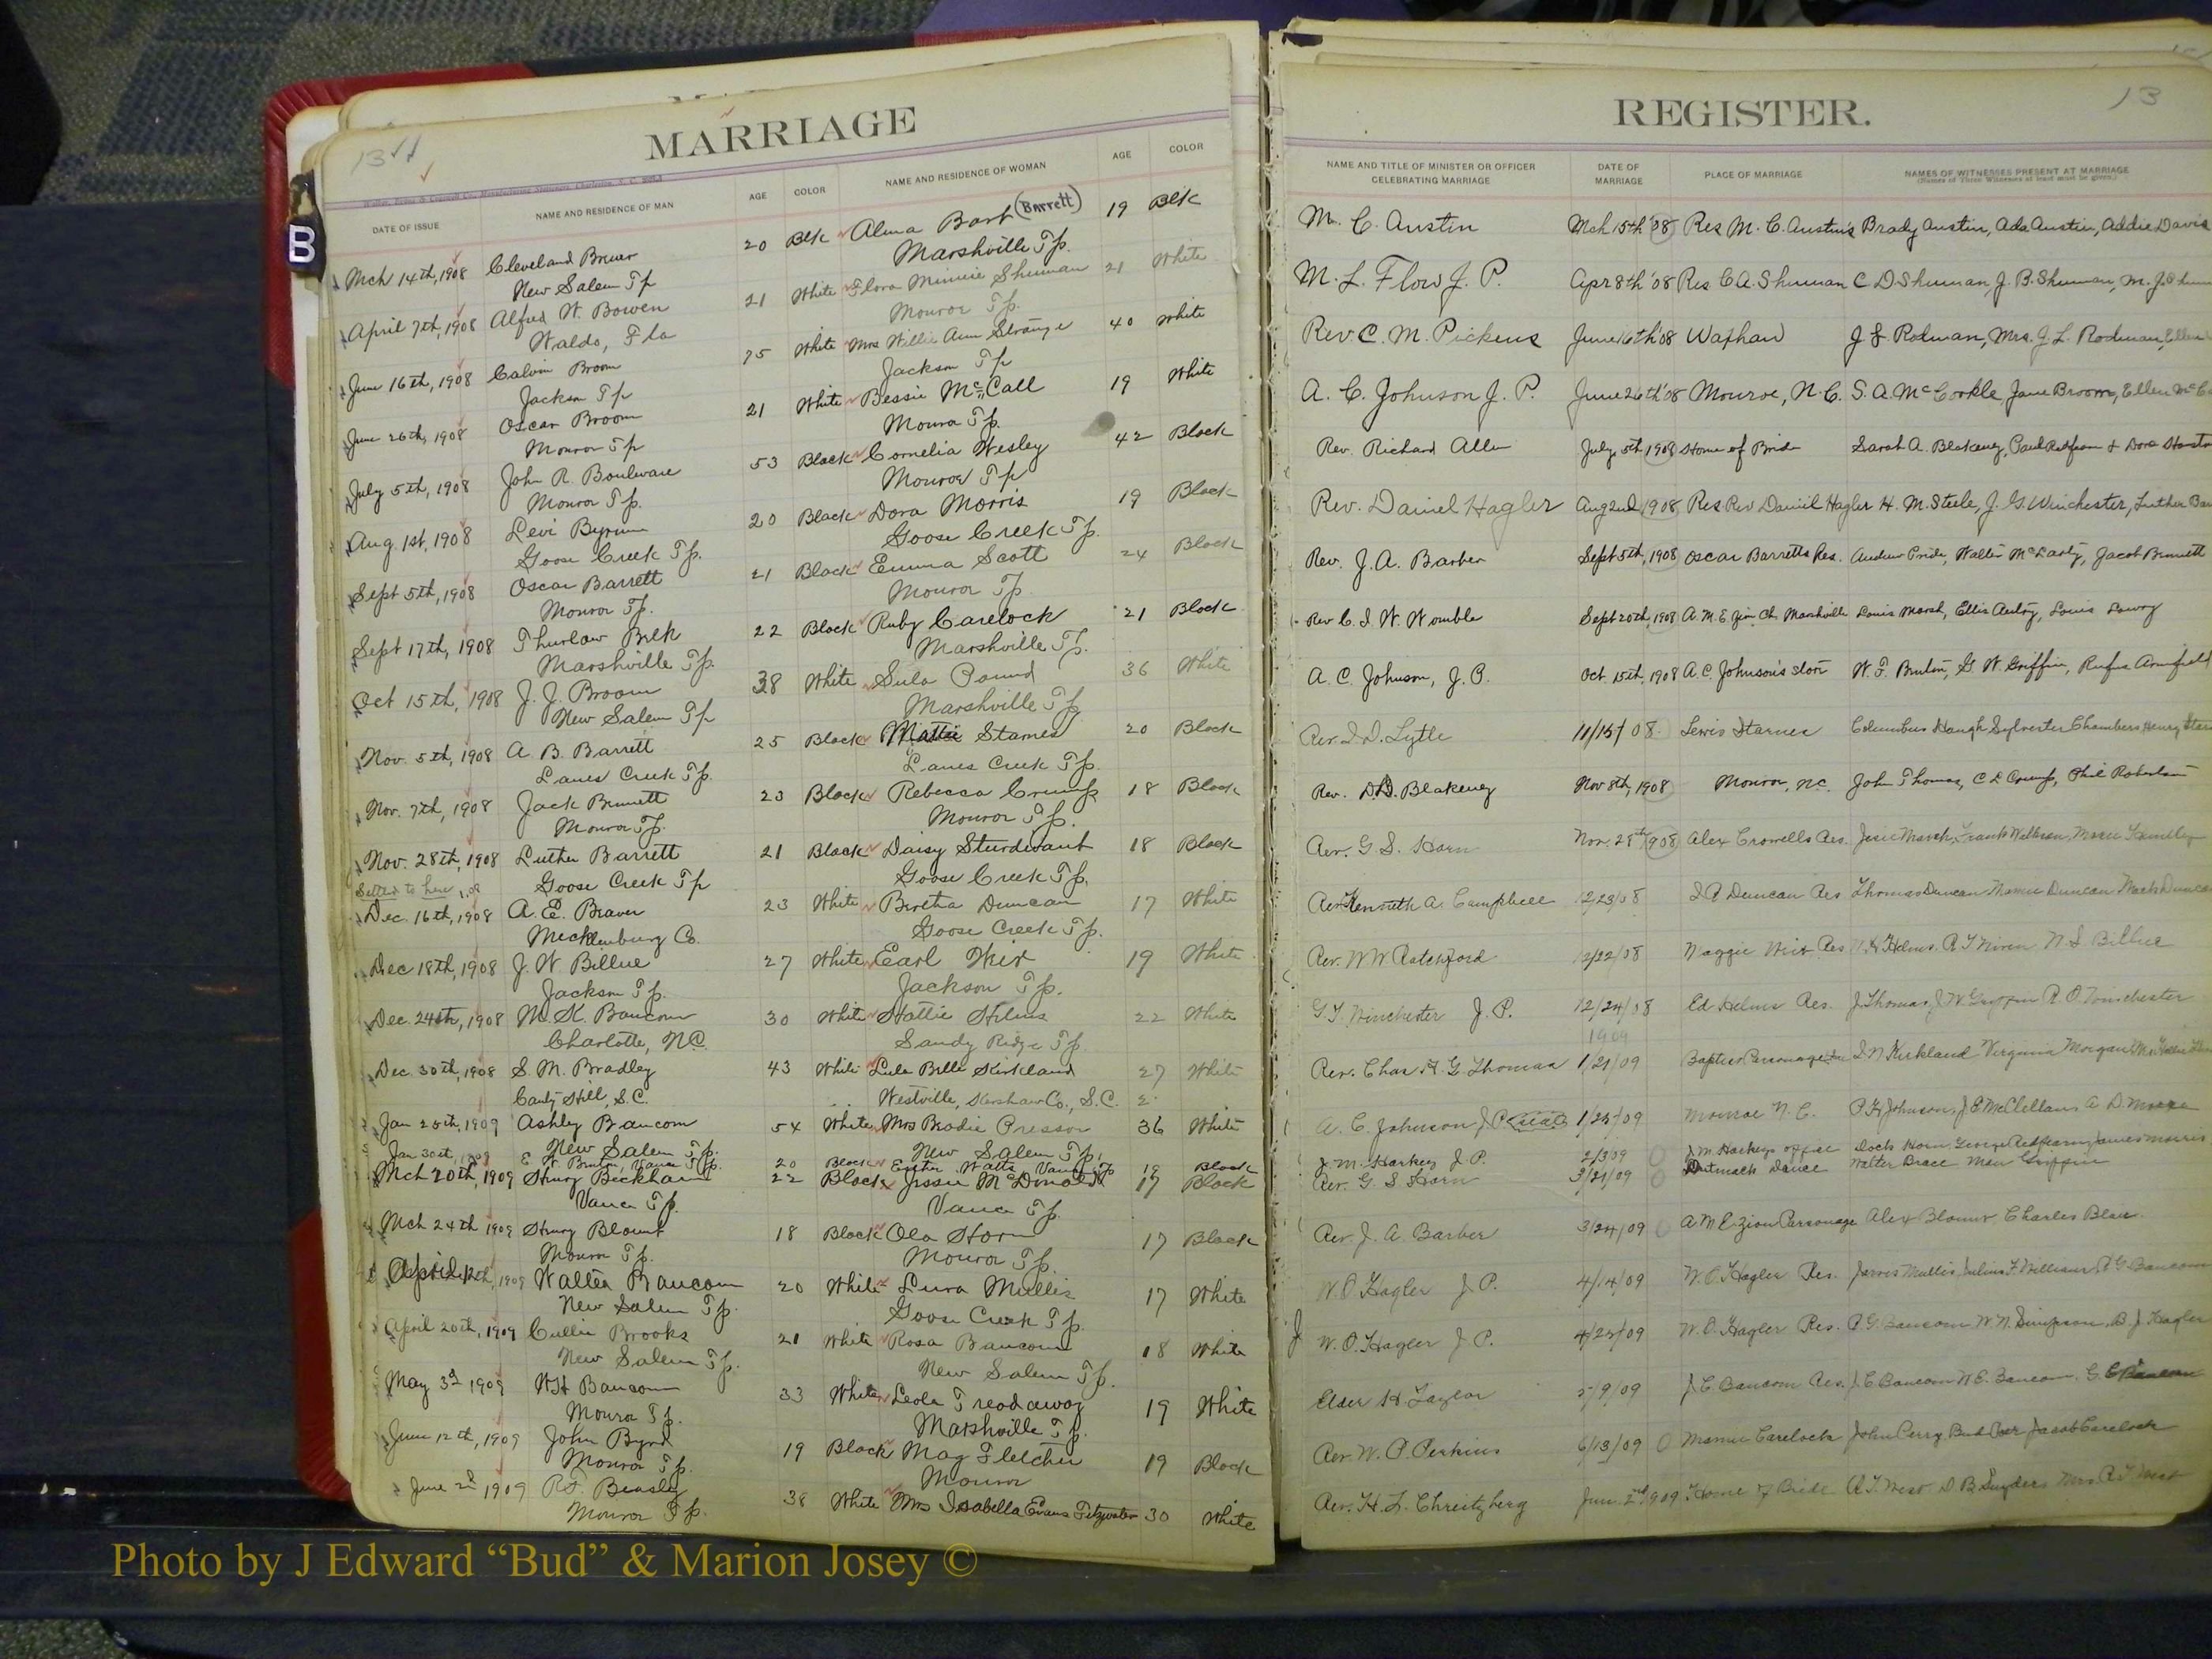 MARRIAGE
DATE OF ISSUE NAME AND RESIDENCE OF MAN AGE COLOR NAME AND RESIDENCE OF WOMAN AGE COLOR
B
Mch 14th, 1908 Cleveland Brewer 20 Blk Alma Bart (Barrett) 19 Blk
New Salem Tp Marshville Tp.
April 7th, 1908 Alfred W. Bowen 21 White Flora Minnie Shuman 21 White
Waldo, Fla Monroe Tp.
June 16th, 1908 Calvin Broom 75 White Mrs Willie Ann Strange 40 White
Jackson Tp Jackson Tp
June 26th, 1908 Oscar Broom 21 White Bessie McCall 19 White
Monroe Tp Monroe Tp.
July 5th, 1908 John R. Boulware 53 Black Cornelia Wesley 42 Black
Monroe Tp. Monroe Tp
Aug. 1st, 1908 Levi Bynum 20 Black Dora Morris 19 Black
Goose Creek Tp. Goose Creek Tp.
Sept 5th, 1908 Oscar Barrett 21 Black Emma Scott 24 Black
Monroe Tp. Monroe Tp.
Sept 17th, 1908 Thurlow Belk 22 Black Ruby Carelock 21 Black
Marshville Tp. Marshville Tp.
Oct 15th, 1908 J. J. Broom 38 White Sula Pound 36 White
New Salem Tp Marshville Tp
Nov. 5th, 1908 A. B. Barrett 25 Black Mattie Starnes 20 Black
Lanes Creek Tp. Lanes Creek Tp.
Nov. 7th, 1908 Jack Bennett 23 Black Rebecca Crump 18 Black
Monroe Tp. Monroe Tp.
Nov. 28th, 1908 Luther Barrett 21 Black Daisy Sturdivant 18 Black
Settled to here Goose Creek Tp Goose Creek Tp.
Dec. 16th, 1908 A. E. Beaver 23 White Bertha Duncan 17 White
Mecklenburg Co. Goose Creek Tp.
Dec 18th, 1908 J. W. Billue 27 White Earl Weir 19 White
Jackson Tp. Jackson Tp.
Dec. 24th, 1908 M. K. Baucom 30 White Hattie Helms 22 White
Charlotte, N.C. Sandy Ridge Tp.
Dec. 30th, 1908 S. M. Bradley 43 White Lula Belle Kirkland 27 White
Hill, S.C. Westville, Kershaw Co., S.C.
Jan 25th, 1909 Ashley Baucom 54 White Mrs Brodie Presson 36 White
New Salem Tp. New Salem Tp.
Jan 30th, 1909 Vance Tp. 20 Black Esther Watts, Vance Tp 19 Black
Mch 20th, 1909 Henry Beckham 22 Black Jessie McDonald 17 Black
Vance Tp. Vance Tp.
Mch 24th 1909 Henry Blount 18 Black Ola Horn 17 Black
Monroe Tp. Monroe Tp.
April 12th, 1909 Walter Baucom 20 White Lura Mullis 17 White
New Salem Tp. Goose Creek Tp.
April 20th, 1909 Cullie Brooks 21 White Rosa Baucom 18 White
New Salem Tp. New Salem Tp.
May 3d 1909 W H Baucom 33 White Leola Treadaway 19 White
Monroe Tp. Marshville Tp.
June 12th, 1909 John Byrd 19 Black Mag Fletcher 19 Black
Monroe Tp. Monroe
June 2d 1909 R. F. Beasley 38 White Mrs Isabella Evans Fitzwater 30 White
Monroe Tp.
REGISTER.
13
NAME AND TITLE OF MINISTER OR OFFICER CELEBRATING MARRIAGE DATE OF MARRIAGE PLACE OF MARRIAGE NAMES OF WITNESSES PRESENT AT MARRIAGE
(Names of Three Witnesses at least must be given.)
M. C. Austin Mch 15th '08 Res M. C. Austin's Brady Austin, Ada Austin, Addie Davis
M. L. Flow J. P. Apr 8th '08 Res C A. Shuman C D. Shuman, J. B. Shuman, M. J.
Rev. C. M. Pickens June 16th '08 Waxhaw J L Rodman, Mrs. J. L. Rodman, Ellen
A. C. Johnson J. P. June 26th '08 Monroe, N. C. S. A. McCorkle, Jane Broom, Ellen
Rev. Richard Allen July 5th 1908 Home of Bride Sarah A. Blakeney, Paul Redfearn & Dora
Rev. Daniel Hagler Aug 2nd 1908 Res Rev Daniel Hagler H. M. Steele, J. G. Winchester, Luther
Rev. J. A. Barber Sept 5th, 1908 Oscar Barretts Res. Andrew Pride, Walter McLarty, Jacob Bennett
Rev C. I. W. Womble Sept 20th, 1908 A. M. E Zion Ch. Marshville Louis Marsh, Ellis Autry, Louis Lowry
A. C. Johnson, J. P. Oct. 15th, 1908 A. C. Johnson's Store W. F. Benton, G. W. Griffin, Rufus Armfield
Rev. I. D. Lytle 11/15/08 Lewis Starnes Columbus Haugh Sylvester Chambers Henry
Rev. D. D. Blakeney Nov 8th, 1908 Monroe, NC. John Thomas, C L Crump, Phil Robertson
Rev. G. S. Horn Nov. 28th 1908 Alex Crowells Res. Jesse Marsh, Frank
Rev. Kenneth A. Campbell 12/23/08 Duncan Res Thomas Duncan Mamie Duncan Mack Duncan
Rev. W W Ratchford 12/22/08 Maggie Weir Res Helms. R T Niven N. S. Billue
G T Winchester J. P. 12/24/08 Ed Helms Res. J. Thomas, J W Griffin R. O. Winchester
1909
Rev. Chas H. G. Thomas 1/21/09 Baptist Parsonage Kirkland Virginia Morgan
A. C. Johnson J P 1/25/09 Monroe N. C. P. H. Johnson, J. E. McClellan, A. D.
J. M. Harkey J. P. 2/3/09 J. M. Harkeys office Dock Horn George Redfearn, James Morris
Rev. G S Horn 3/21/09 Walter Brace Griffin
Rev. J. A. Barber 3/24/09 A M E Zion Parsonage Alex Blount Charles Blair
W. O. Hagler J P. 4/14/09 W. O. Hagler Res. Jarvis Mullis Julius F. Williams P. G. Baucom
W. O. Hagler J P. 4/25/09 W. O. Hagler Res. P. G. Baucom W. N. Simpson, B. J. Hagler
Elder H. Taylor 5/9/09 J. C. Baucom Res. J. C. Baucom W. E. Baucom,
Rev. W. P. Perkins 6/13/09 Mamie Carelock John Perry Jacob Carelock
Rev. H. F. Chreitzberg Jun. 2nd 1909 Home of Bride R. T. West D. B. Snyder Mrs. R. T. West
Photo by J Edward “Bud” & Marion Josey ©